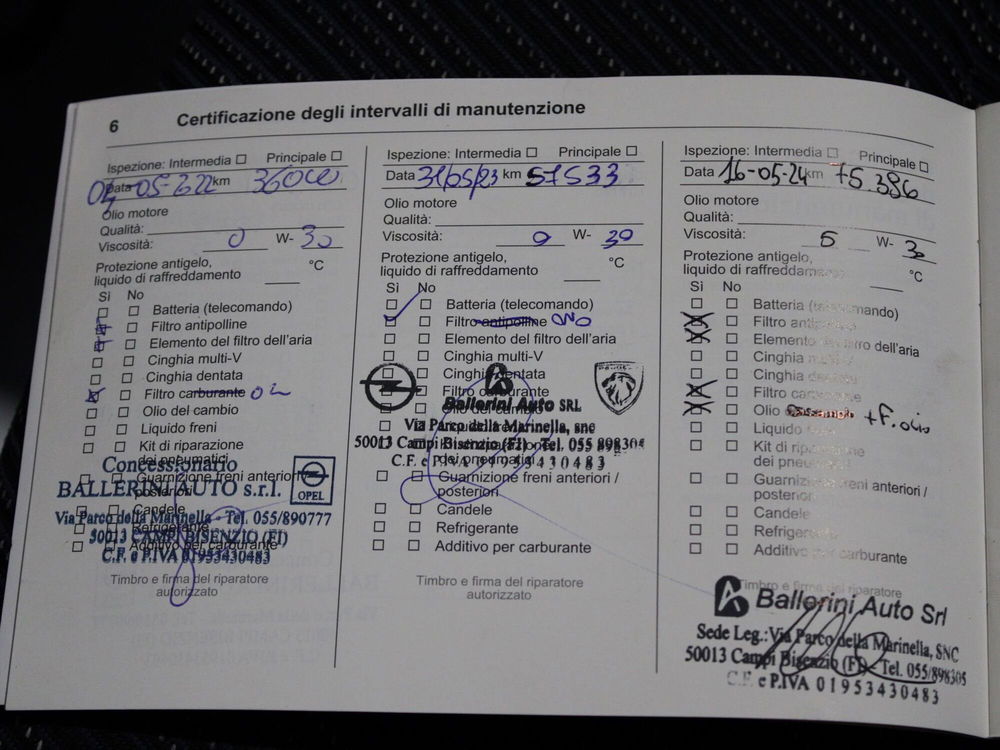 6 Certificazione degli intervalli di manutenzione
Ispezione: Intermedia Principale
Data 04-05-222 km 36000
Olio motore
Qualità:
Viscosità: 0 W- 30
Protezione antigelo, °C
liquido di raffreddamento
Sì No
Batteria (telecomando)
Filtro antipolline
Elemento del filtro dell'aria
Cinghia multi-V
Cinghia dentata
Filtro carburante
Olio del cambio
Liquido freni
Kit di riparazione
dei pneumatici
Guarnizione freni anteriori /
posteriori
Candele
Refrigerante
Additivo per carburante
Concessionario
BALLERINI AUTO s.r.l. OPEL
Via Parco della Marinella - Tel. 055/890777
50013 CAMPI BISENZIO (FI)
C.F. e P.IVA 01953430483
Timbro e firma del riparatore
autorizzato
Ispezione: Intermedia Principale
Data 31/05/23 km 57533
Olio motore
Qualità:
Viscosità: 0 W- 30
Protezione antigelo, °C
liquido di raffreddamento
Sì No
Batteria (telecomando)
Filtro antipolline
Elemento del filtro dell'aria
Cinghia multi-V
Cinghia dentata
Filtro carburante
Olio del cambio
Liquido freni
Kit di riparazione
dei pneumatici
Guarnizione freni anteriori /
posteriori
Candele
Refrigerante
Additivo per carburante
Ballerini Auto SRL
Via Parco della Marinella, snc
50013 Campi Bisenzio (FI) - Tel. 055 898305
C.F. e P.IVA 01953430483
Timbro e firma del riparatore
autorizzato
Ispezione: Intermedia Principale
Data 16-05-24 km 75.386
Olio motore
Qualità:
Viscosità: 5 W- 30
Protezione antigelo, °C
liquido di raffreddamento
Sì No
Batteria (telecomando)
Filtro antipolline
Elemento del filtro dell'aria
Cinghia multi-V
Cinghia dentata
Filtro carburante
Olio + F. olio
Liquido freni
Kit di riparazione
dei pneumatici
Guarnizione freni anteriori /
posteriori
Candele
Refrigerante
Additivo per carburante
Timbro e firma del riparatore
Ballerini Auto Srl
Sede Leg.: Via Parco della Marinella, SNC
50013 Campi Bisenzio (FI) - Tel. 055/898305
C.F. e P.IVA 01953430483